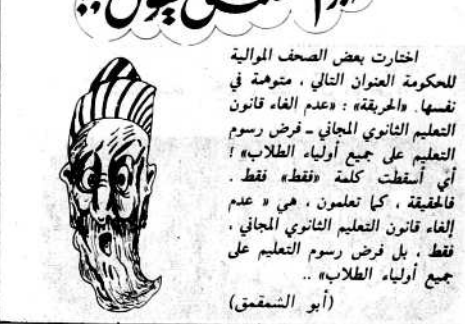 اختارت بعض الصحف الموالية
للحكومة العنوان التالي ، متوهمة في
نفسها. «الحربقة» : «عدم الغاء قانون
التعليم الثانوي المجاني ـ فرض رسوم
التعليم على جميع أولياء الطلاب» !
أي أسقطت كلمة «فقط» فقط .
فالحقيقة ، كما تعلمون ، هي « عدم
إلغاء قانون التعليم الثانوي المجاني ،
فقط ، بل فرض رسوم التعليم على
جميع أولياء الطلاب» ..
(أبو الشمقمق)